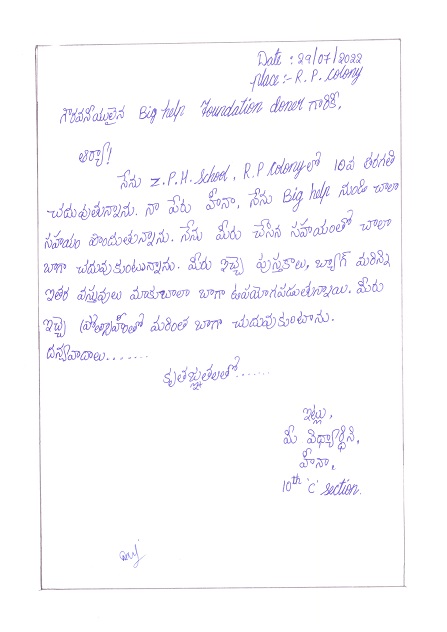 Date : 29/07/2022
place:- R.P. Colony
గౌరవనీయులైన Big help Foundation doner గారికి,
ఆర్యా!
నేను Z.P.H. School, R.P Colony లో 10వ తరగతి
చదువుతున్నాను. నా పేరు హీనా, నేను Big help నుండి చాలా
సహాయం పొందుతున్నాను. నేను మీరు చేసిన సహాయంతో చాలా
బాగా చదువుకుంటున్నాను. మీరు ఇచ్చె పుస్తకాలు, బ్యాగ్ మరిన్ని
ఇతర వస్తువులు మాకుచాలా బాగా ఉపయోగపడుతున్నాయి. మీరు
ఇచ్చె ప్రోత్సాహంతో మరింత బాగా చదువుకుంటాను.
దన్యవాదాలు.......
కృతజ్ఞతలతో......
ఇట్లు,
మీ విధ్యార్థిని,
హీనా,
10th 'C' section.